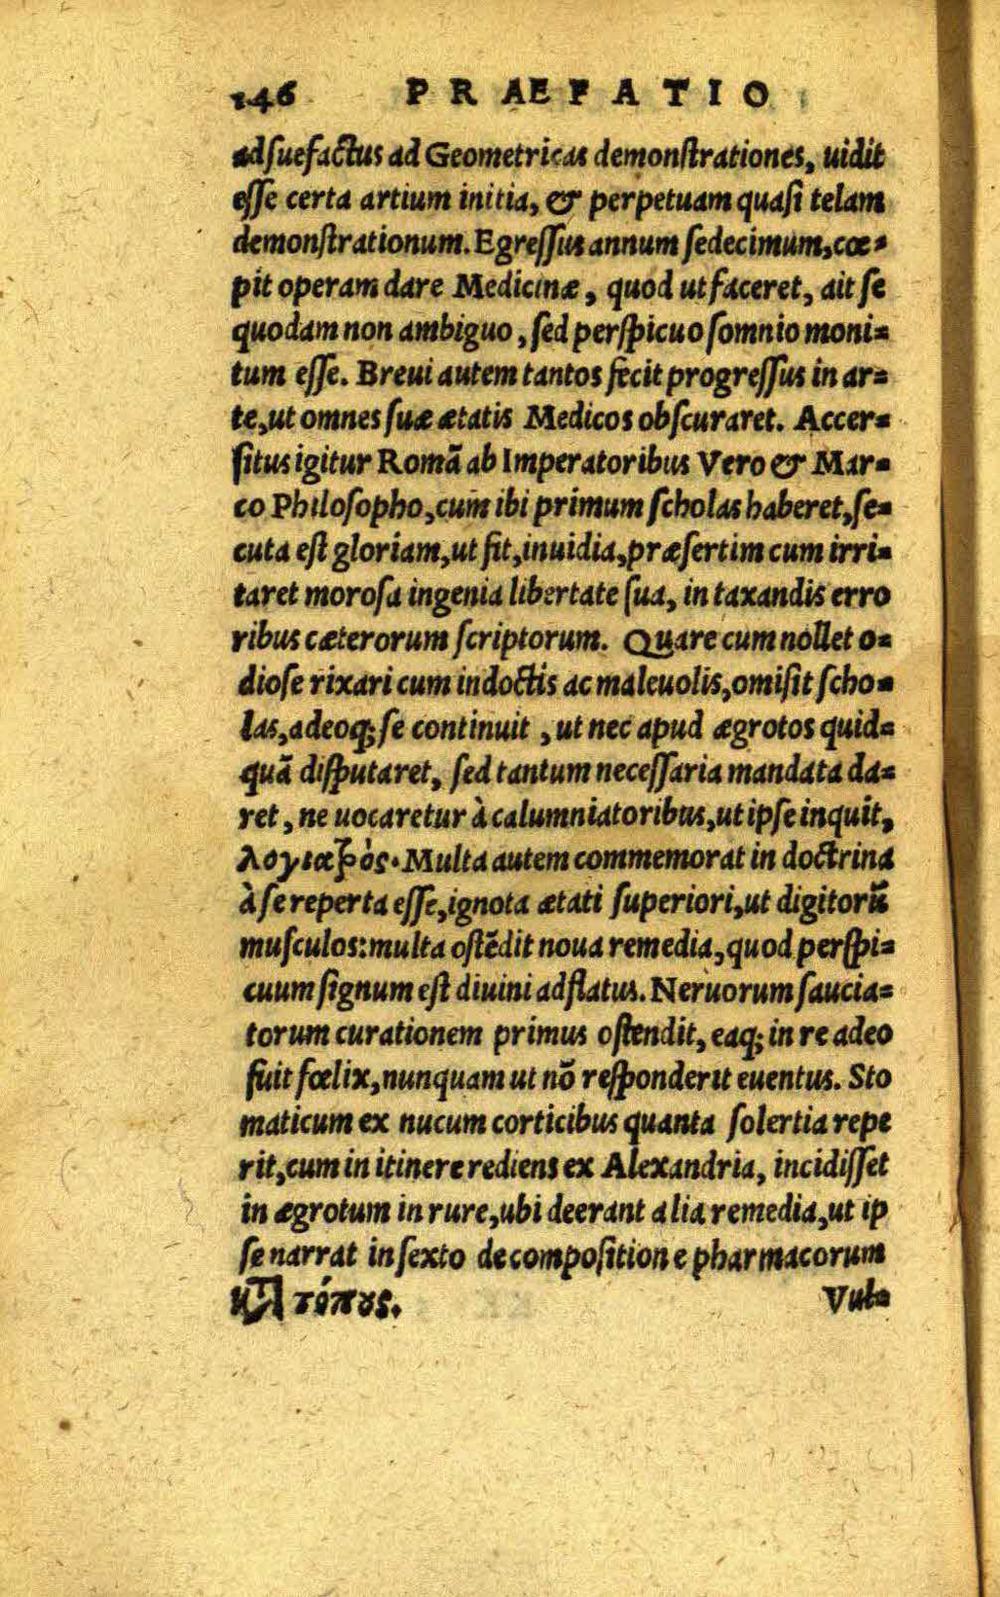 146 PRAEFATIO
adſuefactus ad Geometricas demonſtrationes, uidit
eſſe certa artium initia, & perpetuam quaſi telam
demonſtrationum. Egreſſus annum ſedecimum, cœ=
pit operam dare Medicinæ, quod ut faceret, ait ſe
quodam non ambiguo, ſed perſpicuo ſomnio moni=
tum eſſe. Breui autem tantos fecit progreſſus in ar=
te, ut omnes ſuæ ætatis Medicos obſcuraret. Accer=
ſitus igitur Romã ab Imperatoribus Vero & Mar=
co Philoſopho, cum ibi primum ſcholas haberet, ſe=
cuta eſt gloriam, ut fit, inuidia, præſertim cum irri=
taret moroſa ingenia libertate ſua, in taxandis erro
ribus cæterorum ſcriptorum. Quare cum nollet o=
dioſe rixari cum indoctis ac maleuolis, omiſit ſcho=
las, adeoq; ſe continuit, ut nec apud ægrotos quid=
quã diſputaret, ſed tantum neceſſaria mandata da=
ret, ne uocaretur à calumniatoribus, ut ipſe inquit,
λογιατρὸς. Multa autem commemorat in doctrina
à ſe reperta eſſe, ignota ætati ſuperiori, ut digitorũ
muſculos: multa oſtẽdit noua remedia, quod perſpi=
cuum ſignum eſt diuini adflatus. Neruorum ſaucia=
torum curationem primus oſtendit, eaq; in re adeo
fuit fœlix, nunquam ut nõ reſponderit euentus. Sto
maticum ex nucum corticibus quanta ſolertia repe
rit, cum in itinere rediens ex Alexandria, incidiſſet
in ægrotum in rure, ubi deerant alia remedia, ut ip
ſe narrat in ſexto de compoſitione pharmacorum
κατὰ τόπους. Vul=